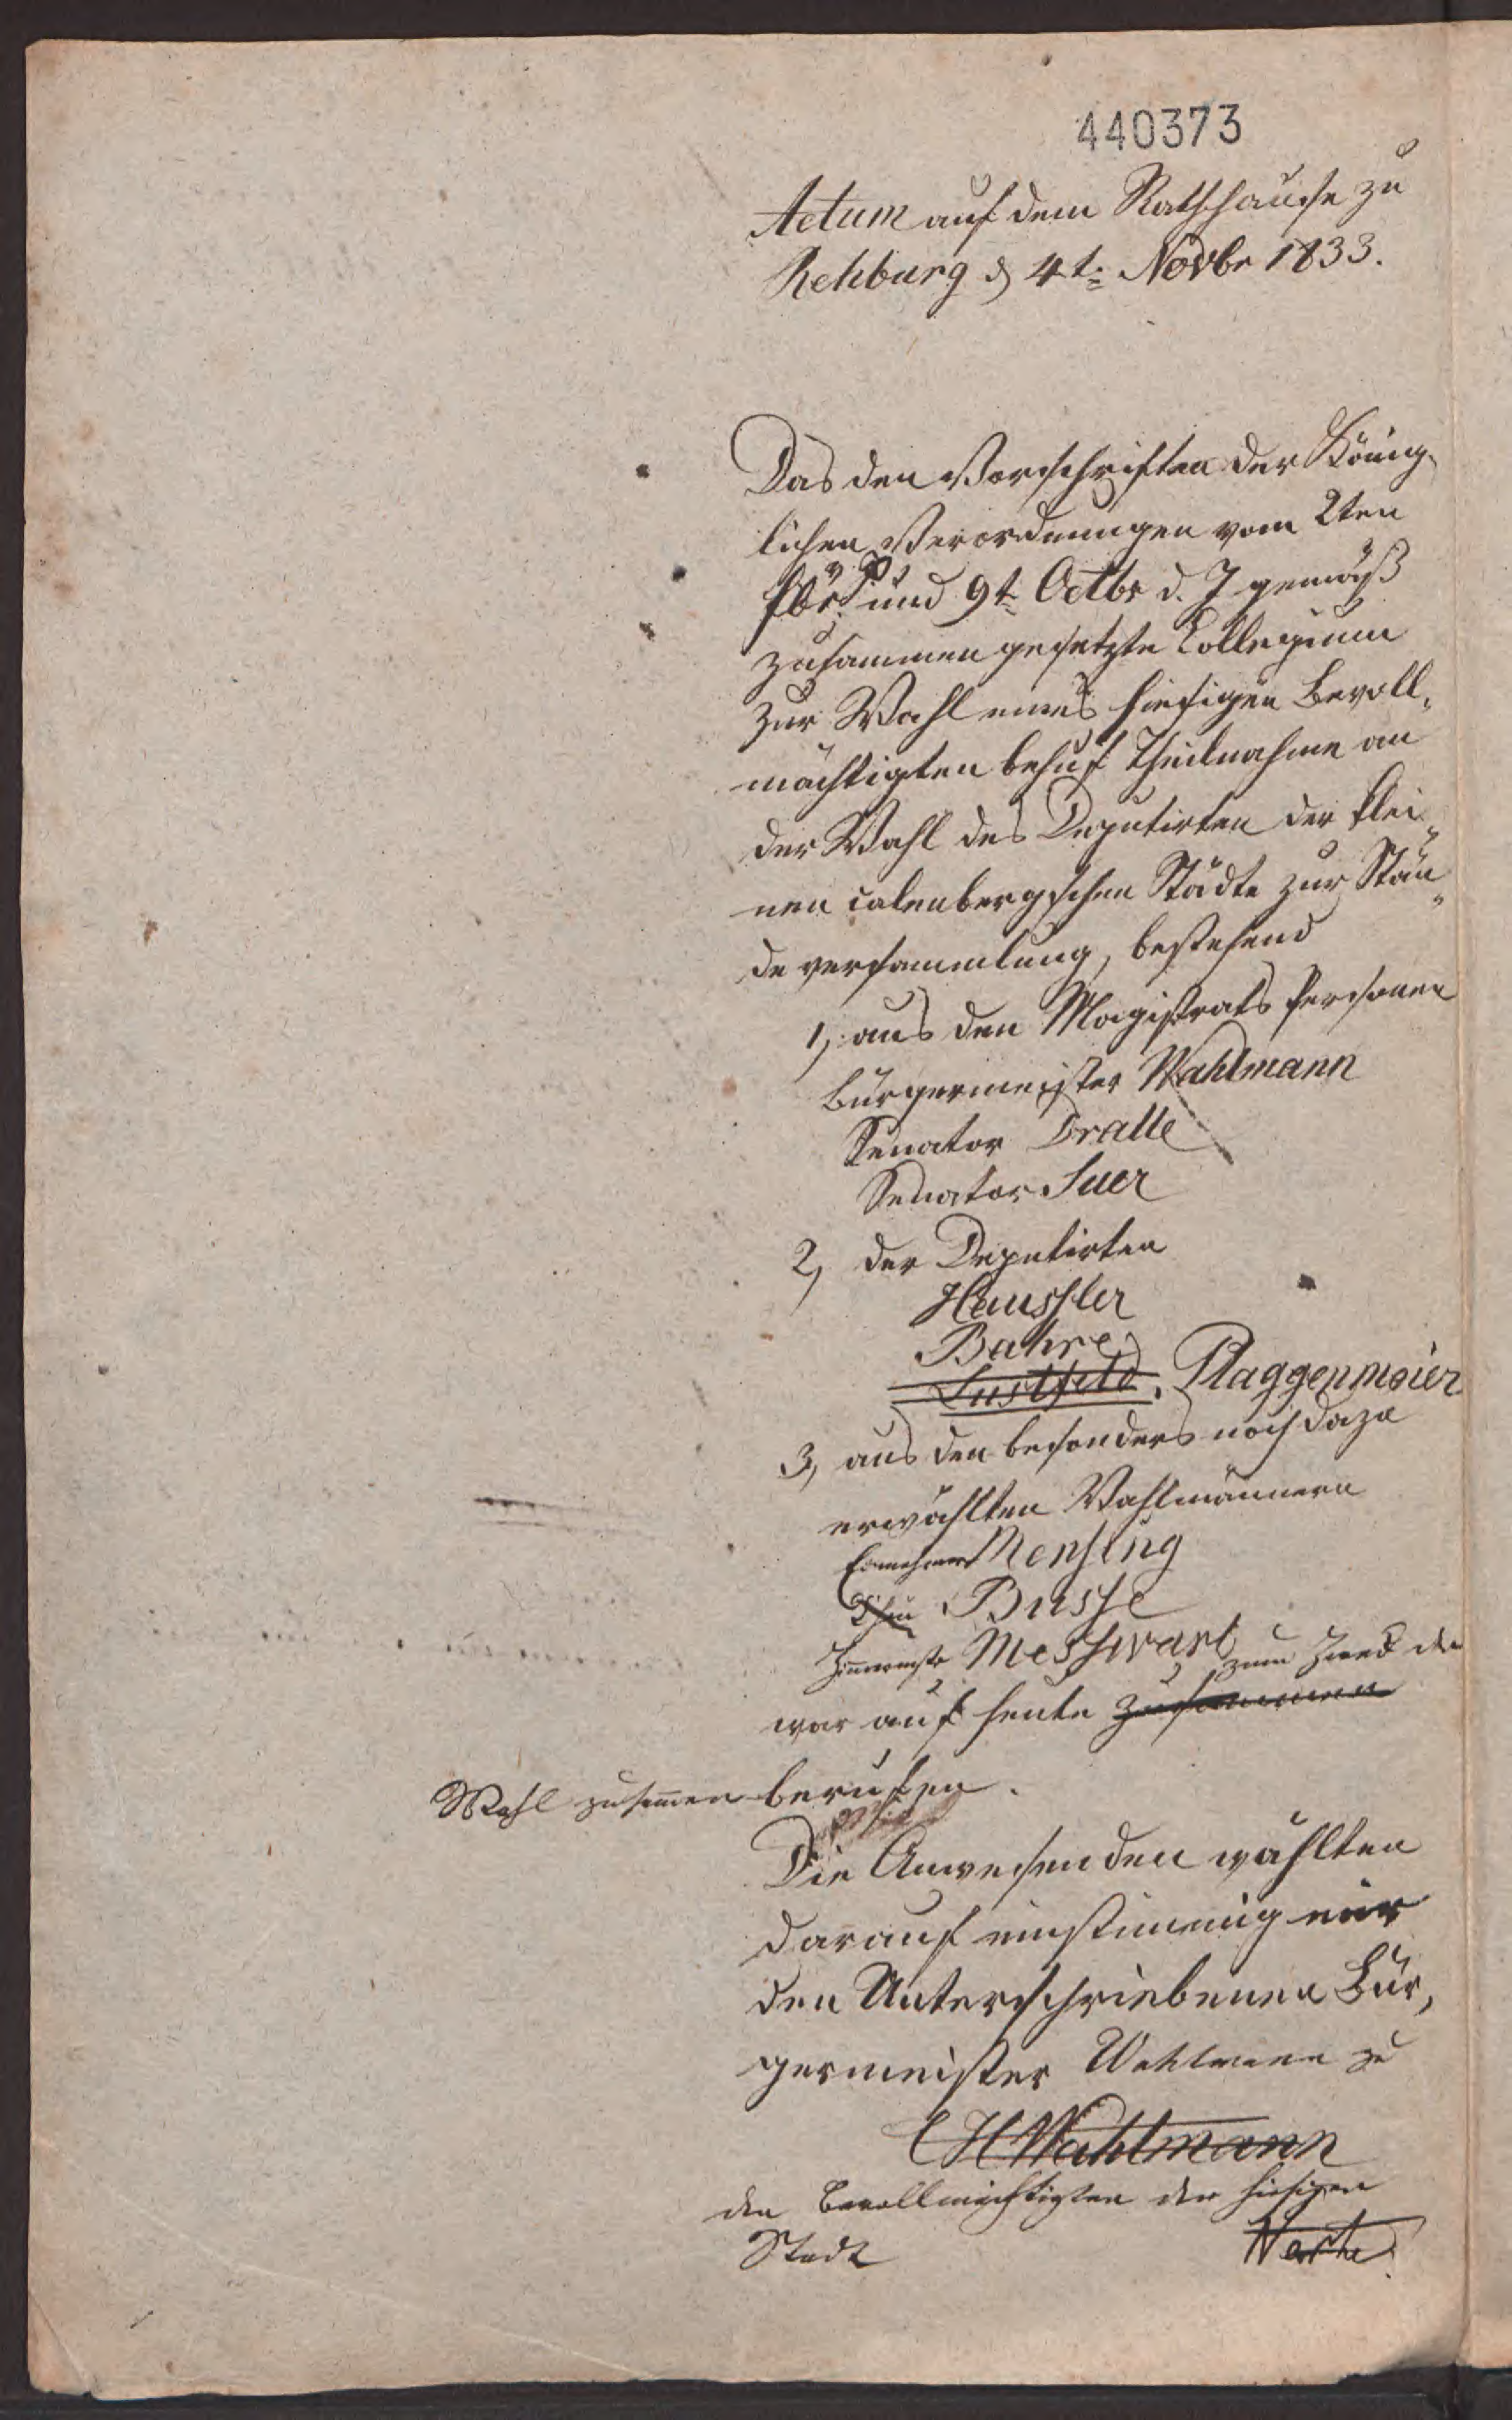 440373
Actum auf dem Rathhause zu
Rehburg d 4t. Novbr 1833.
Das den Vorschriften der König-
lichen Verordnungen vom 2ten
und 9t Octbr d. J gemäß
zusammen gesetzte Collegium
zur Wahl eines hiesigen Bevoll-
mächtigten behuf Theilnahme an
der Wahl des Deputirten der klei-
nen calenbergschen Städte zur Stän-
deversammlung, bestehend
1, aus den Magistrats Personen
Bürgermeister Wahlmann
Senator Dralle
Senator Suer
2, der Deputirten
Haussler
Bahre
Lustfeld. Plaggenmeier
3, aus den besonders noch dazu
erwählten Wahlmännern
Einnehmer Mensing
Busse
Messwarb
zum Zweck der
war auf heute zusammen
Wahl zusamen berufen.
Die Anwesenden wählten
darauf einstimmig mir
den Unterschriebenen Bür-
germeister Wahlmann zu
CHWahlmann
den Bevollmächtigten der hiesigen
Stadt